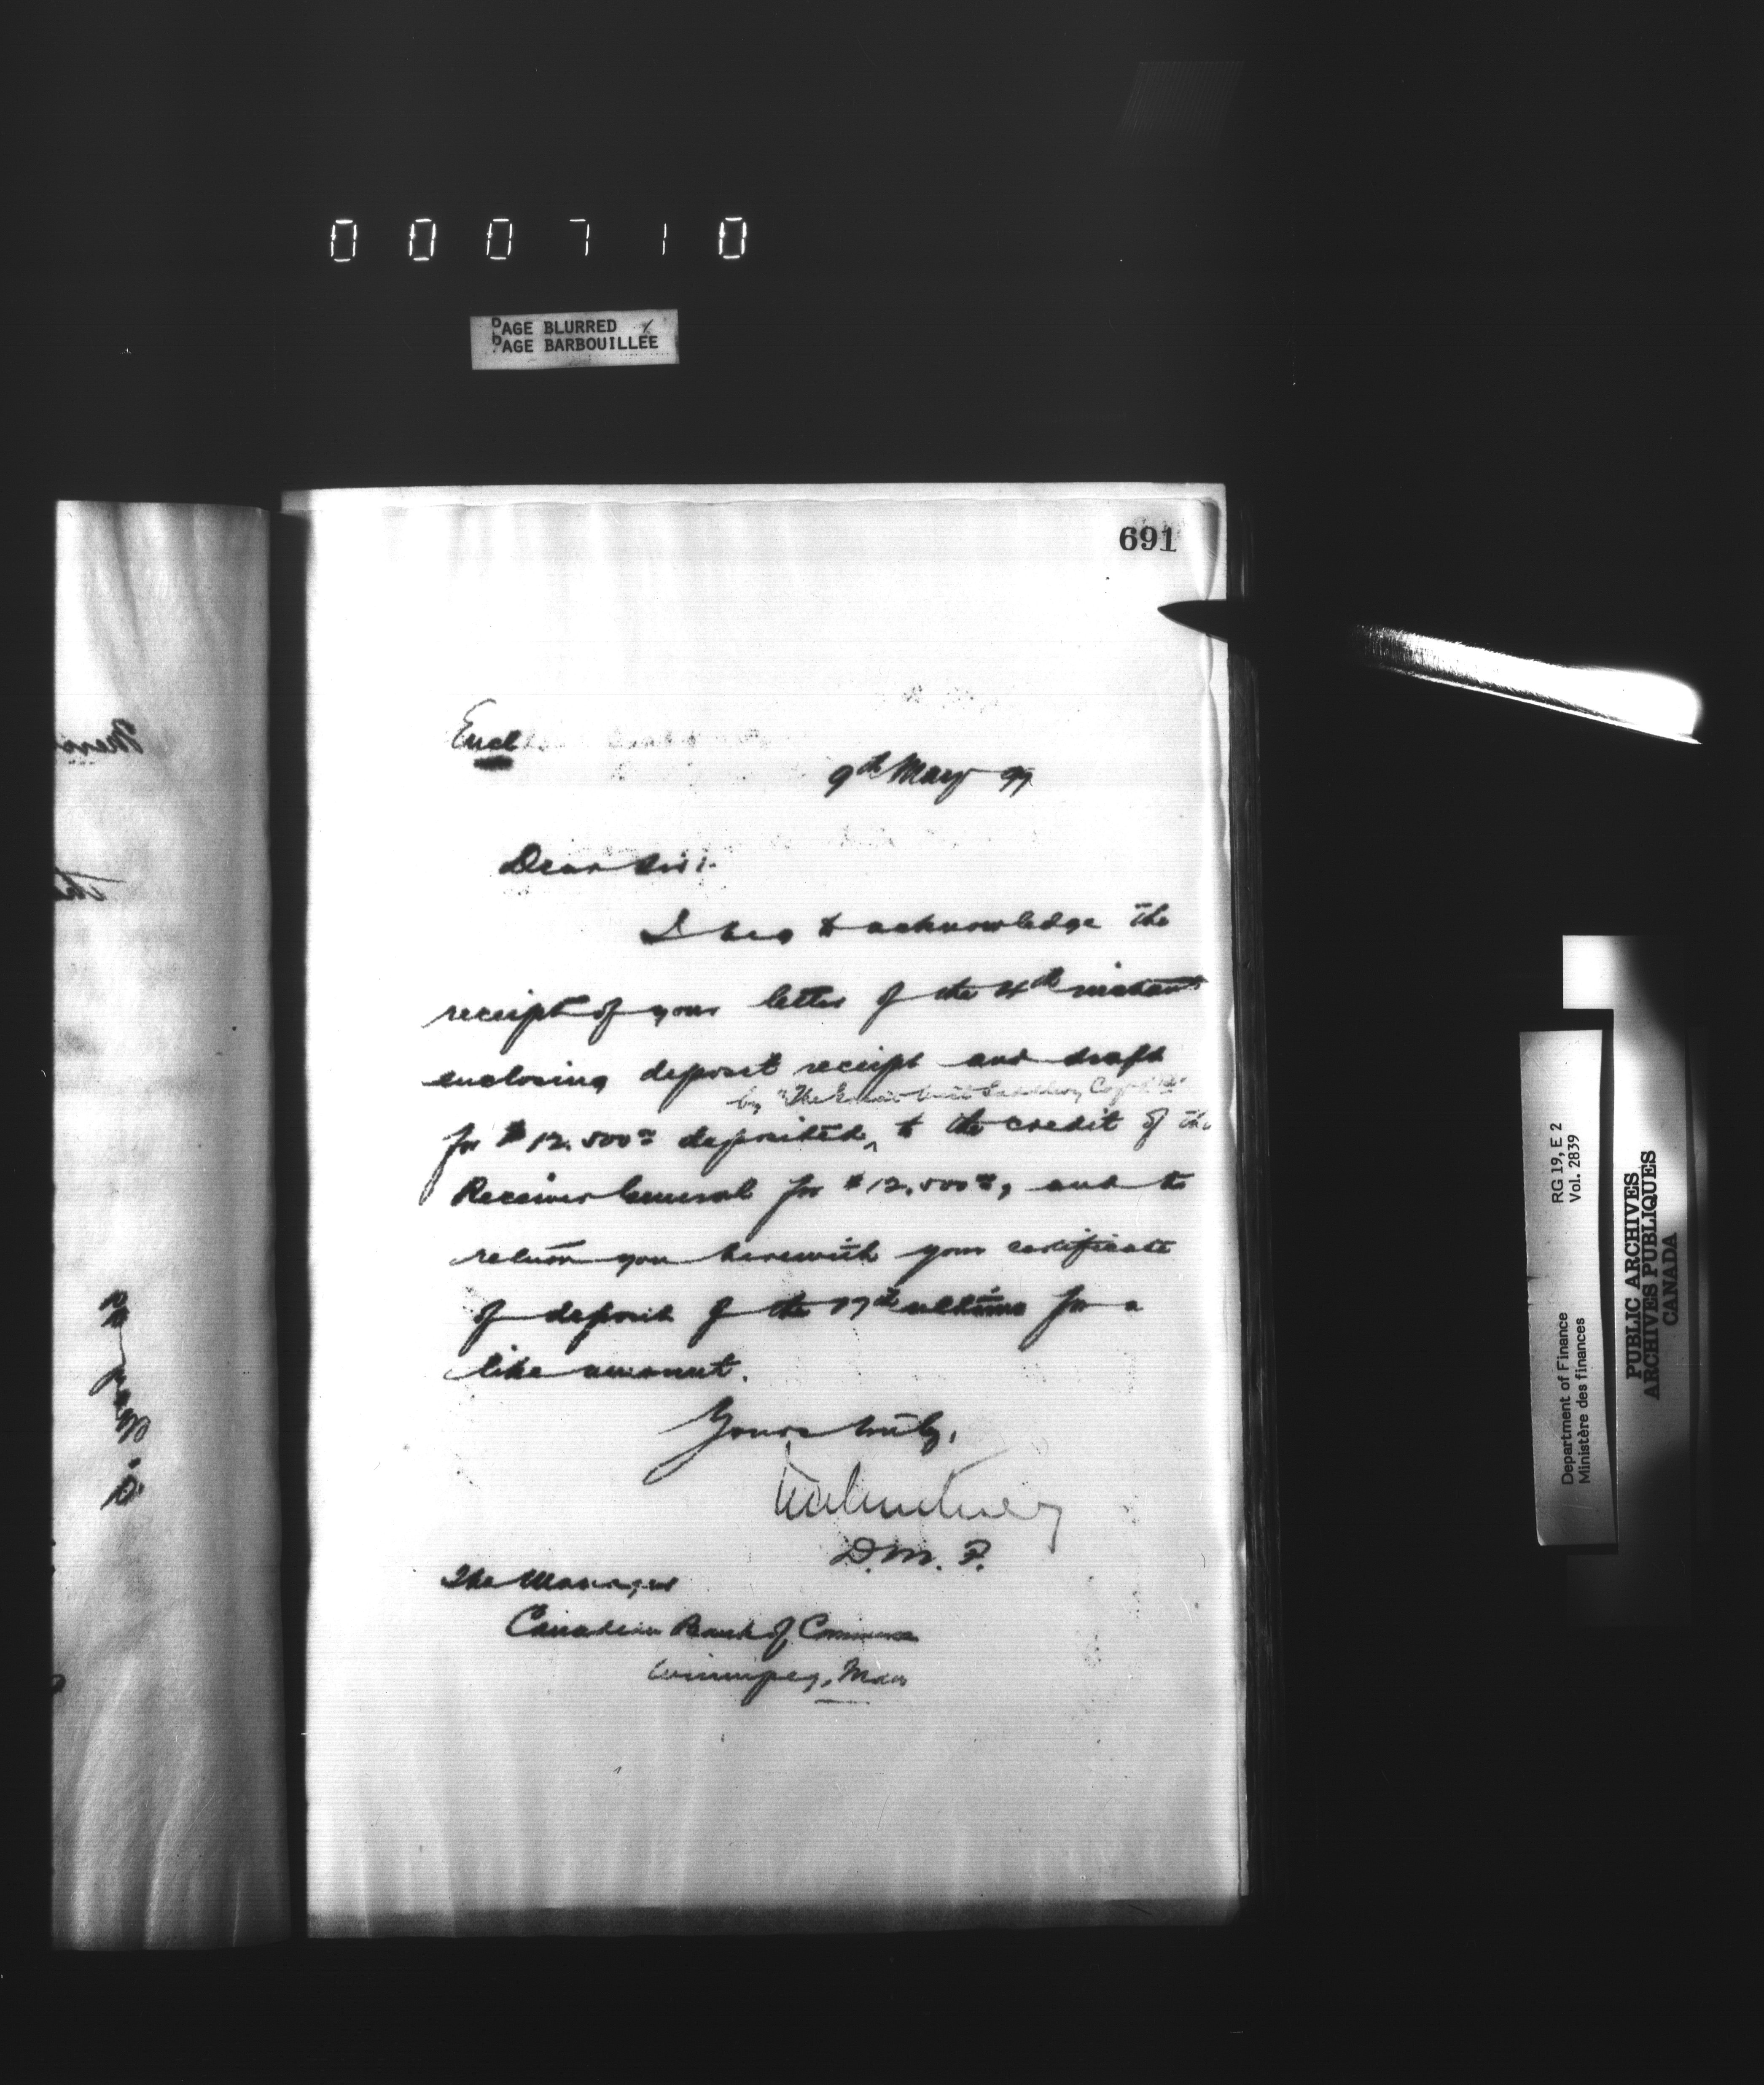 000710
PAGE BLURRED
PAGE BARBOUILLÉE
691
Encl
9th May 97
Dear Sir:
I beg to acknowledge the
receipt of your letter of the 4th instant
enclosing deposit receipt and draft
by "The
for $12.500 00 deposited ^ to the credit of the
Receiver General for $12,500 00, and to
return you herewith your certificate
of deposit of the 17th ultimo for a
like amount.
Yours truly,
D.M.F.
The Manager
Canadian Bank of Commerce
Winnipeg, Man
RG 19, E 2
Vol. 2839
Department of Finance
Ministère des finances
PUBLIC ARCHIVES
ARCHIVES PUBLIQUES
CANADA